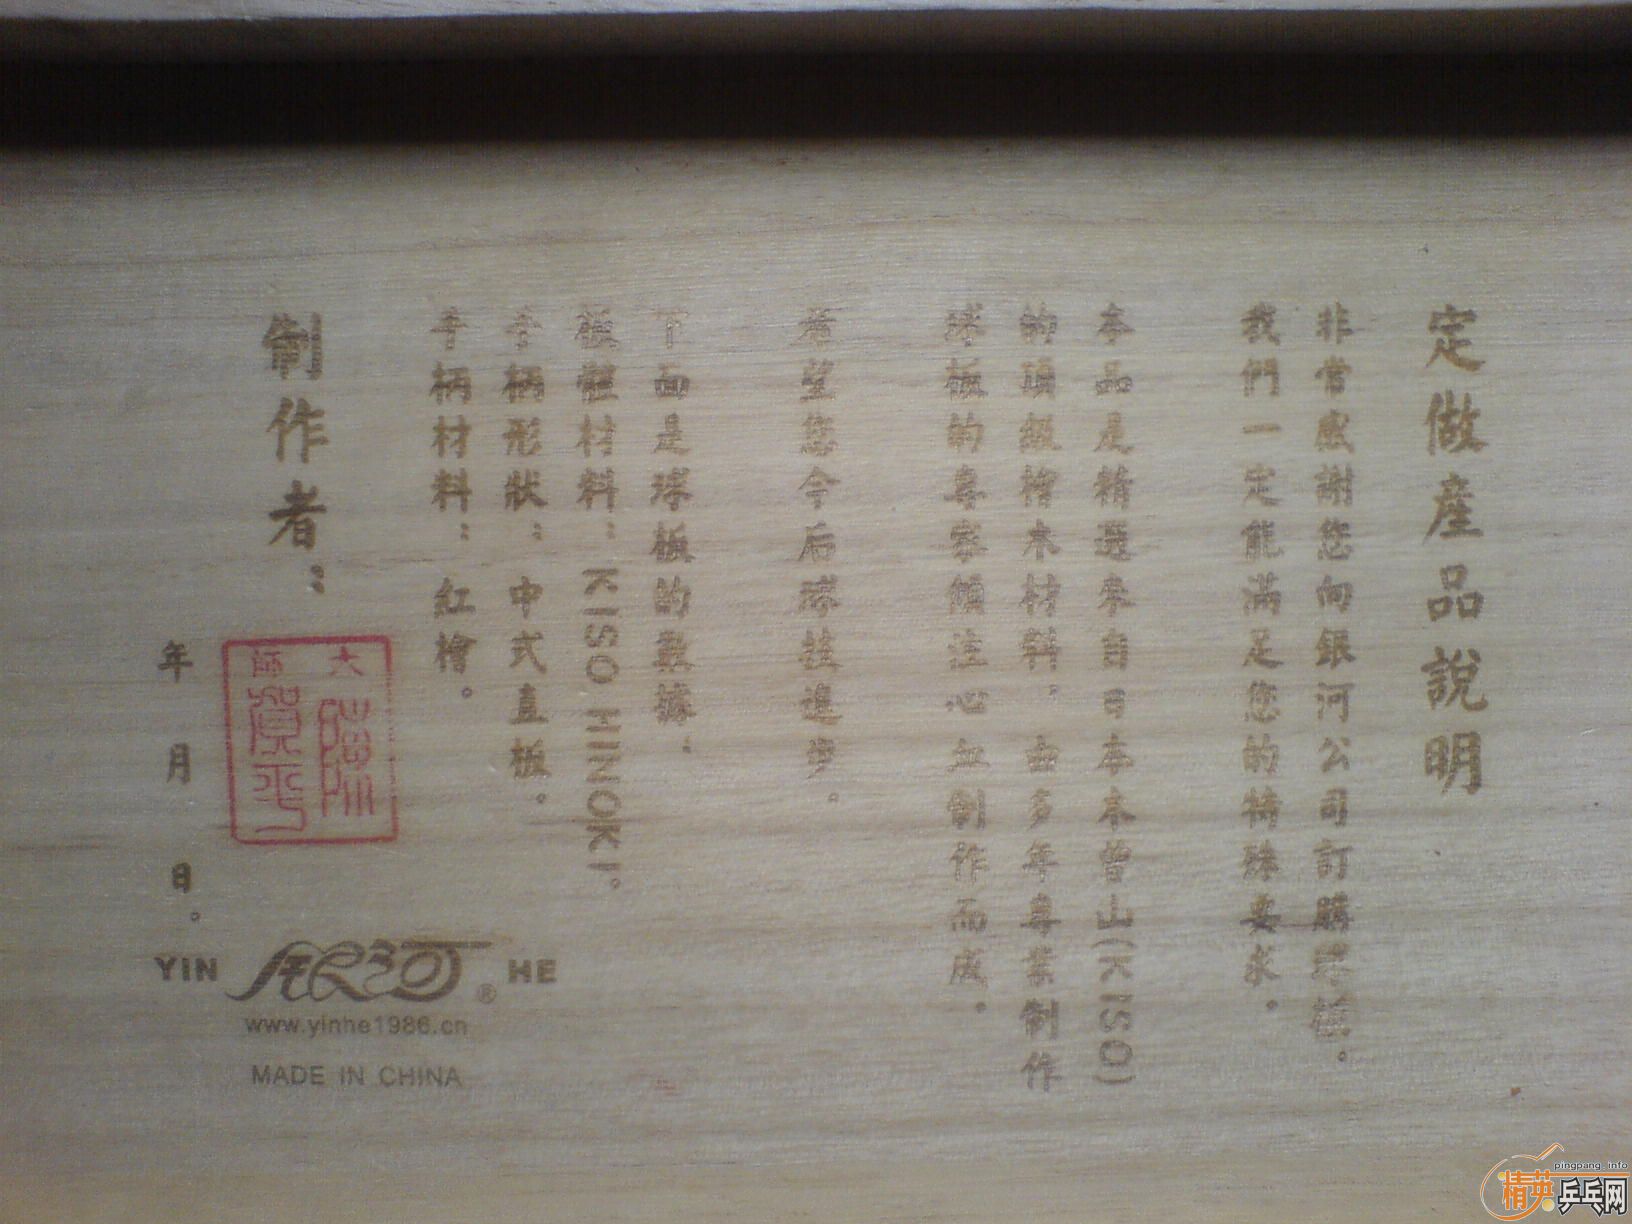 定做産品說明
非常感謝您向銀河公司訂購球板。
我們一定能滿足您的特殊要求。
本品是精選來自日本木曾山(KISO)
的頂級檜木材料，由多年專業制作
球板的專家傾注心血制作而成。
希望您今后球技進步。
下面是球板的數據：
板體材料：KISO HINOKI。
手柄形狀：中式直板。
手柄材料：紅檜。
制作者：
大師
年 月 日。
YIN 銀河® HE
www.yinhe1986.cn
MADE IN CHINA
pingpang.info
精英乒乓网